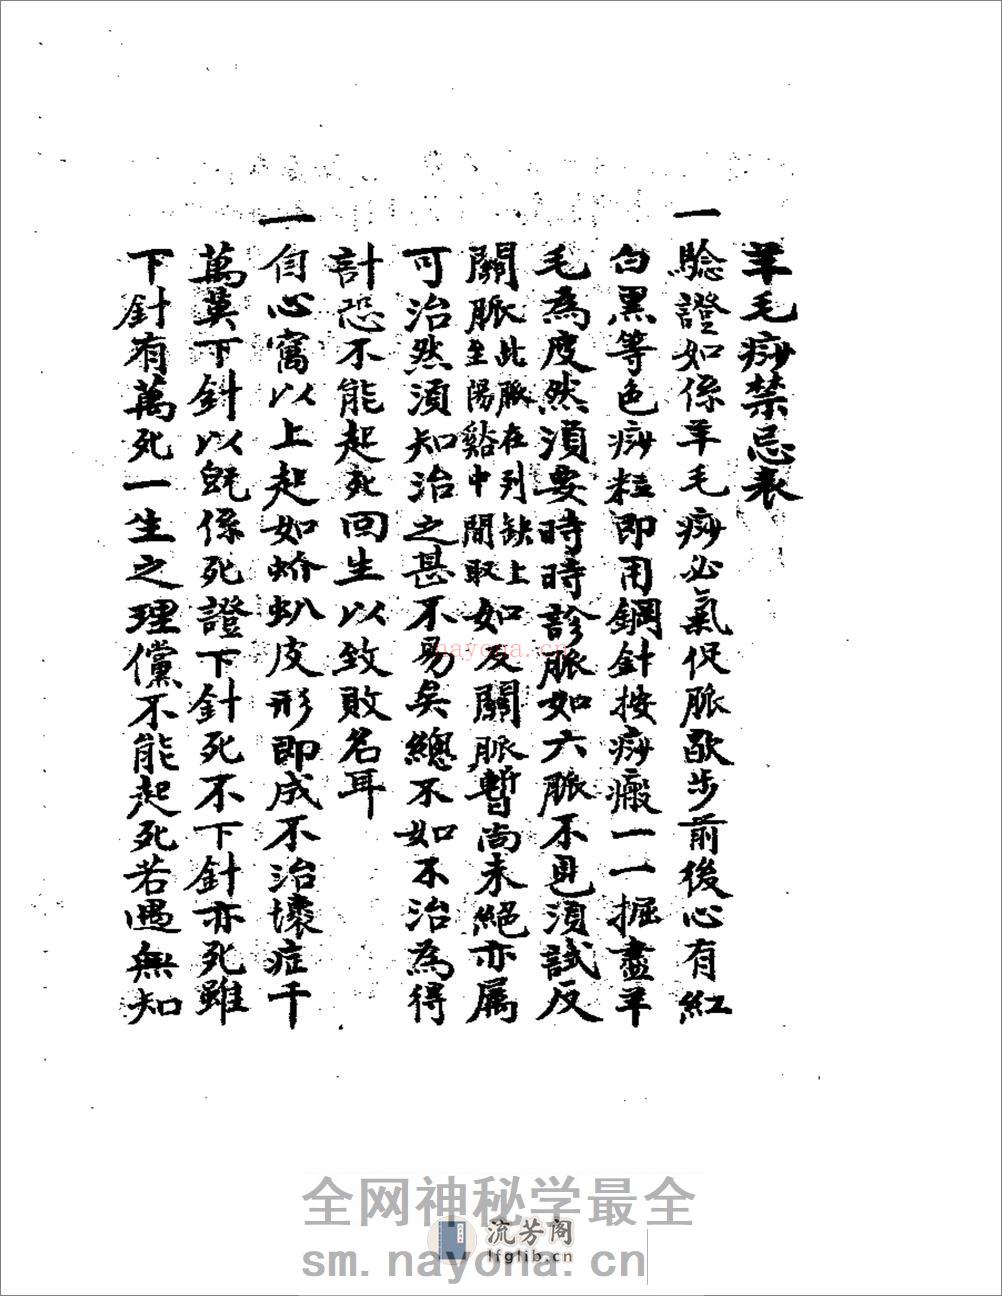 羊毛痧禁忌表
一 驗證如係羊毛痧必氣促脈歇步前後心有紅
白黑等色痧粒即用鋼針按痧瘢一一掘盡羊
毛為度然須要時時診脈如六脈不見須試反
關脈此脈在列缺上至陽谿中間取如反關脈暫尚未絕亦属
可治然須知治之甚不易矣總不如不治為得
計恐不能起死回生以致敗名耳
一 自心窩以上起如虾虯皮形即成不治壞症千
萬莫下針以既係死證下針死不下針亦死雖
下針有萬死一生之理儻不能起死若遇無知
nayona.cn
全网神秘学最全
流芳阁
lfglib.cn
sm.nayona.cn